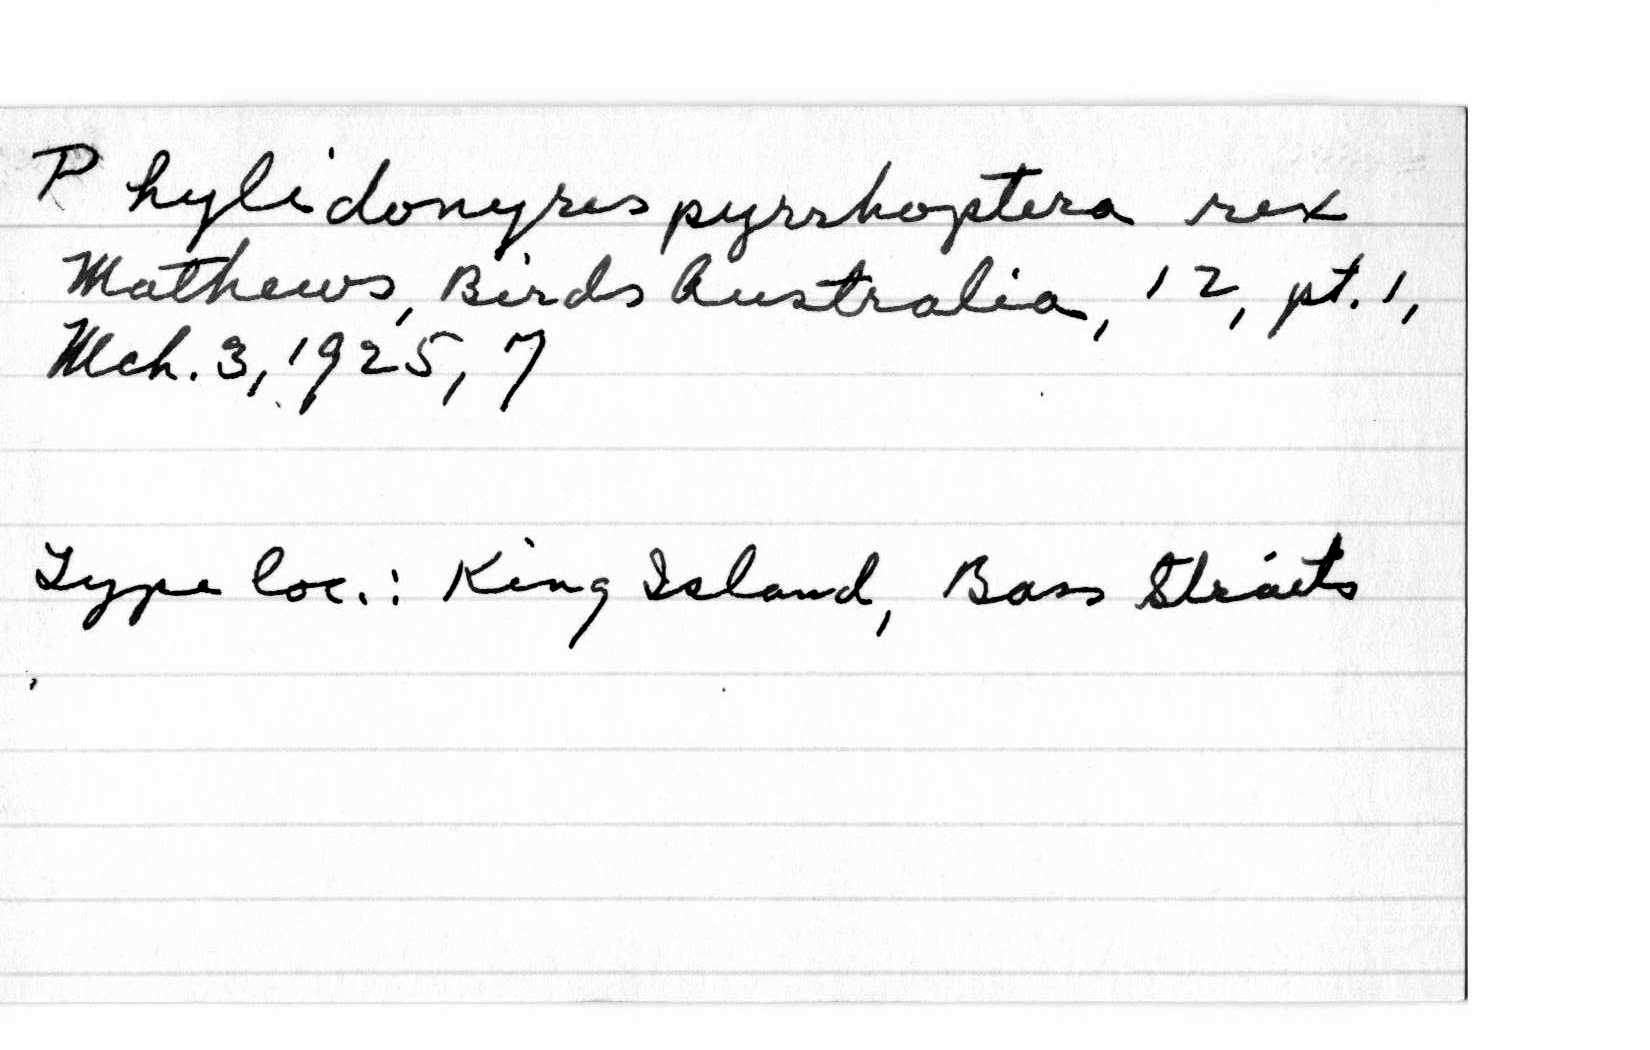 Phylidonyris pyrrhoptera rex
Mathews, Birds Australia, 12, pt. 1,
Mch. 3, 1925, 7
Type loc.: King Island, Bass Straits